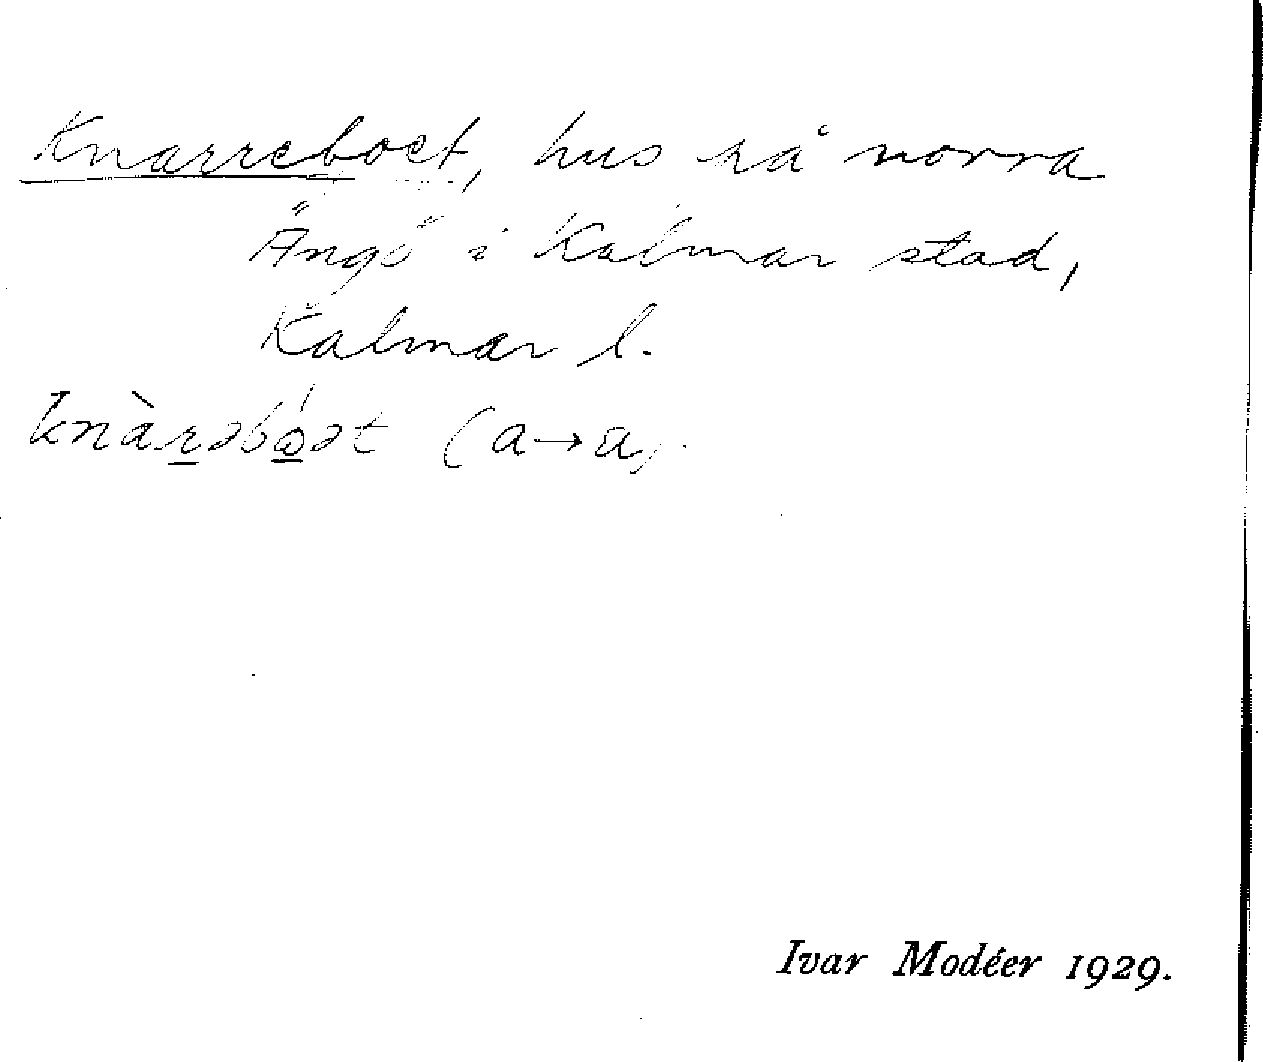 Knarreboet, hus på norra
Ängö i Kalmar stad,
Kalmar l.
knàrəbó̱ət (a→ɑ).
Ivar Modéer 1929.